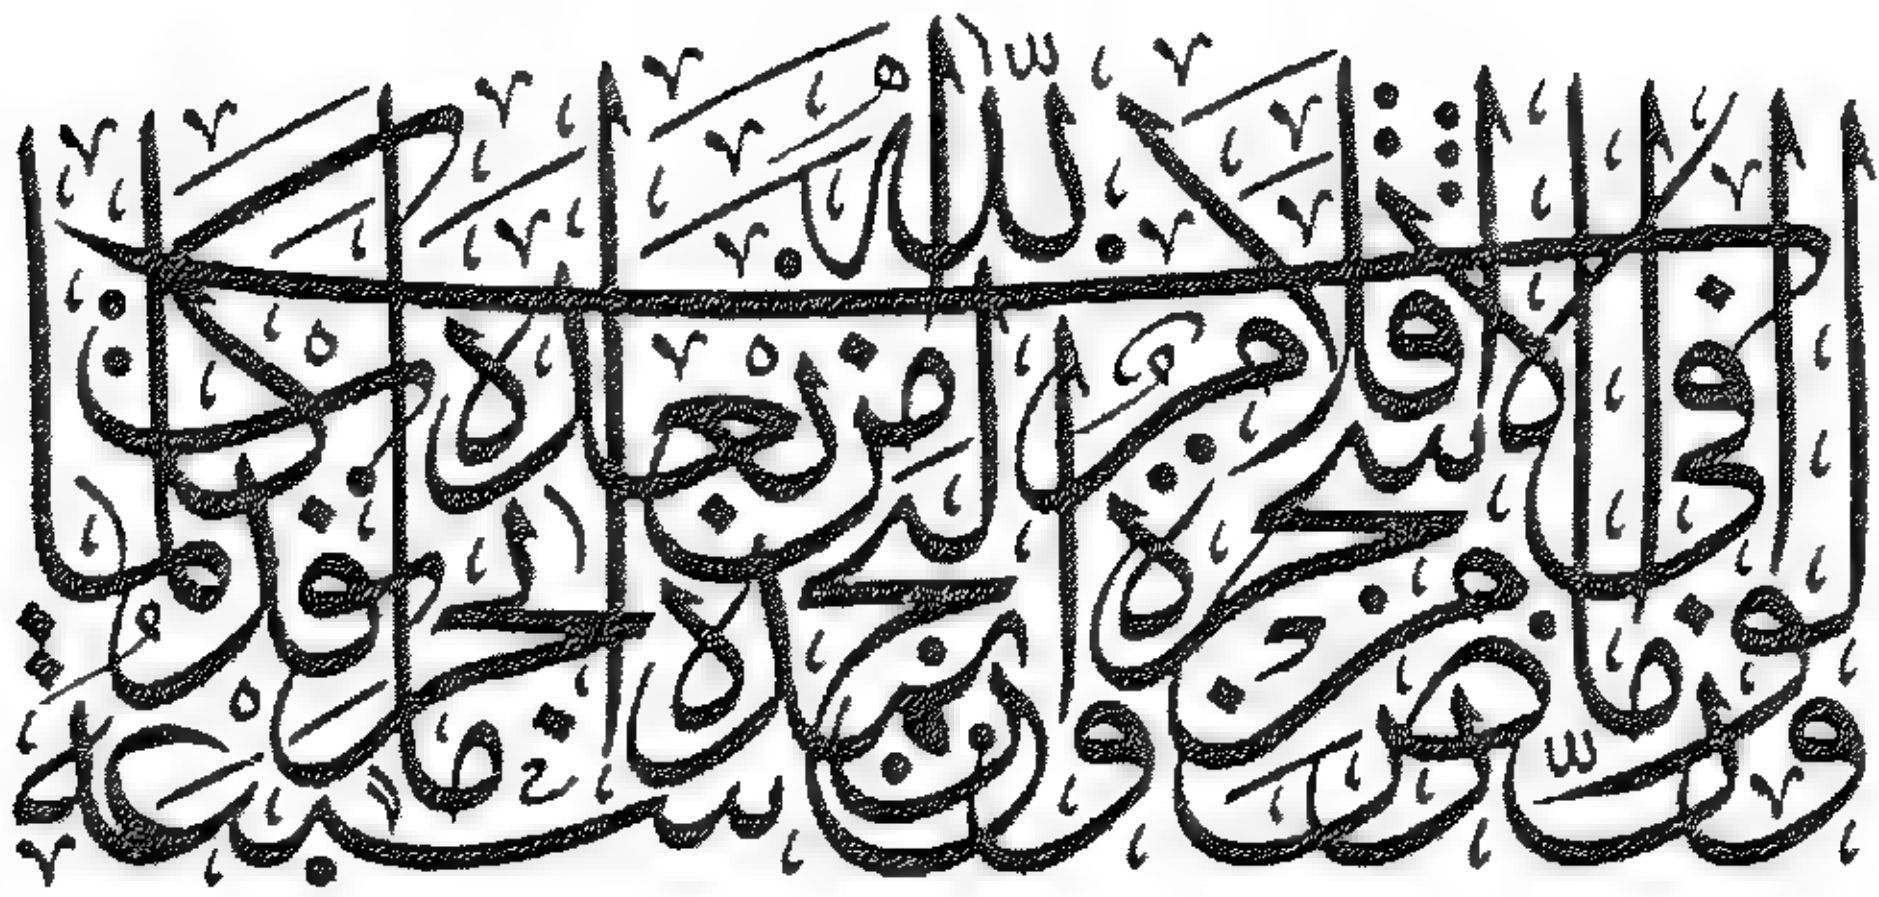 ولو أنما في الأرض من شجرة أقلام والبحر يمده من بعده سبعة أبحر ما نفدت كلمات الله